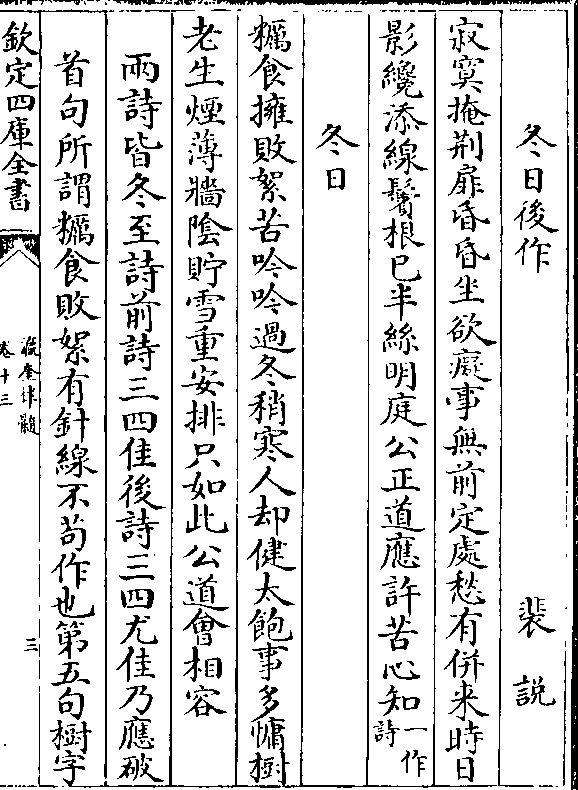 冬日後作　裴說
寂寞掩荆扉昏昏坐欲癡事無前定處愁有併来時日
影纔添線鬢根已半絲明庭公正道應許苦心知一作詩
冬日
糲食擁敗絮苦吟吟過冬稍寒人却健太飽事多慵樹
老生煙薄牆陰貯雪重安排只如此公道會相容
兩詩皆冬至詩前詩三四佳後詩三四尤佳乃應破
首句所謂糲食敗絮有針線不苟作也第五句樹字
欽定四庫全書
瀛奎律髓
卷十三
三